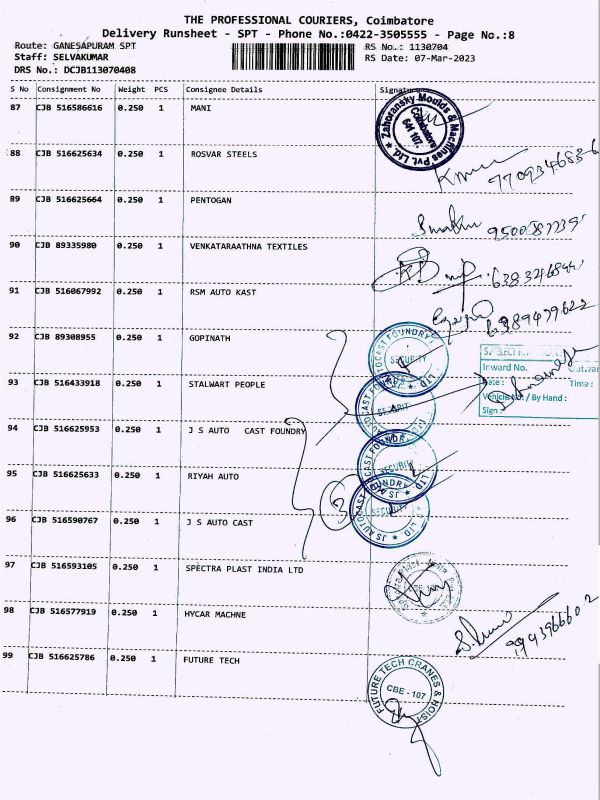 THE PROFESSIONAL COURIERS, Coimbatore
Delivery Runsheet - SPT - Phone No.:0422-3505555 - Page No.:8
Route: GANESAPURAM SPT
RS No.: 1130704
Staff: SELVAKUMAR
RS Date: 07-Mar-2023
DRS No.: DCJB113070408
S No Consignment No Weight PCS Consignee Details Signature
87 CJB 516586616 0.250 1 MANI
Zahoransky Moulds & Machines Pvt. Ltd.
Coimbatore
641 107.
88 CJB 516625634 0.250 1 ROSVAR STEELS
89 CJB 516625664 0.250 1 PENTOGAN
90 CJB 89335980 0.250 1 VENKATARAATHNA TEXTILES
91 CJB 516067992 0.250 1 RSM AUTO KAST
92 CJB 89308955 0.250 1 GOPINATH
SECURITY
Inward No.
Date :
Time :
Vehicle No. / By Hand :
Sign :
93 CJB 516433918 0.250 1 STALWART PEOPLE
94 CJB 516625953 0.250 1 J S AUTO CAST FOUNDRY
SECURITY
95 CJB 516625633 0.250 1 RIYAH AUTO
3
SECURITY
96 CJB 516590767 0.250 1 J S AUTO CAST
97 CJB 516593105 0.250 1 SPECTRA PLAST INDIA LTD
98 CJB 516577919 0.250 1 HYCAR MACHNE
99 CJB 516625786 0.250 1 FUTURE TECH
FUTURE TECH CRANES & HOIST
CBE - 107